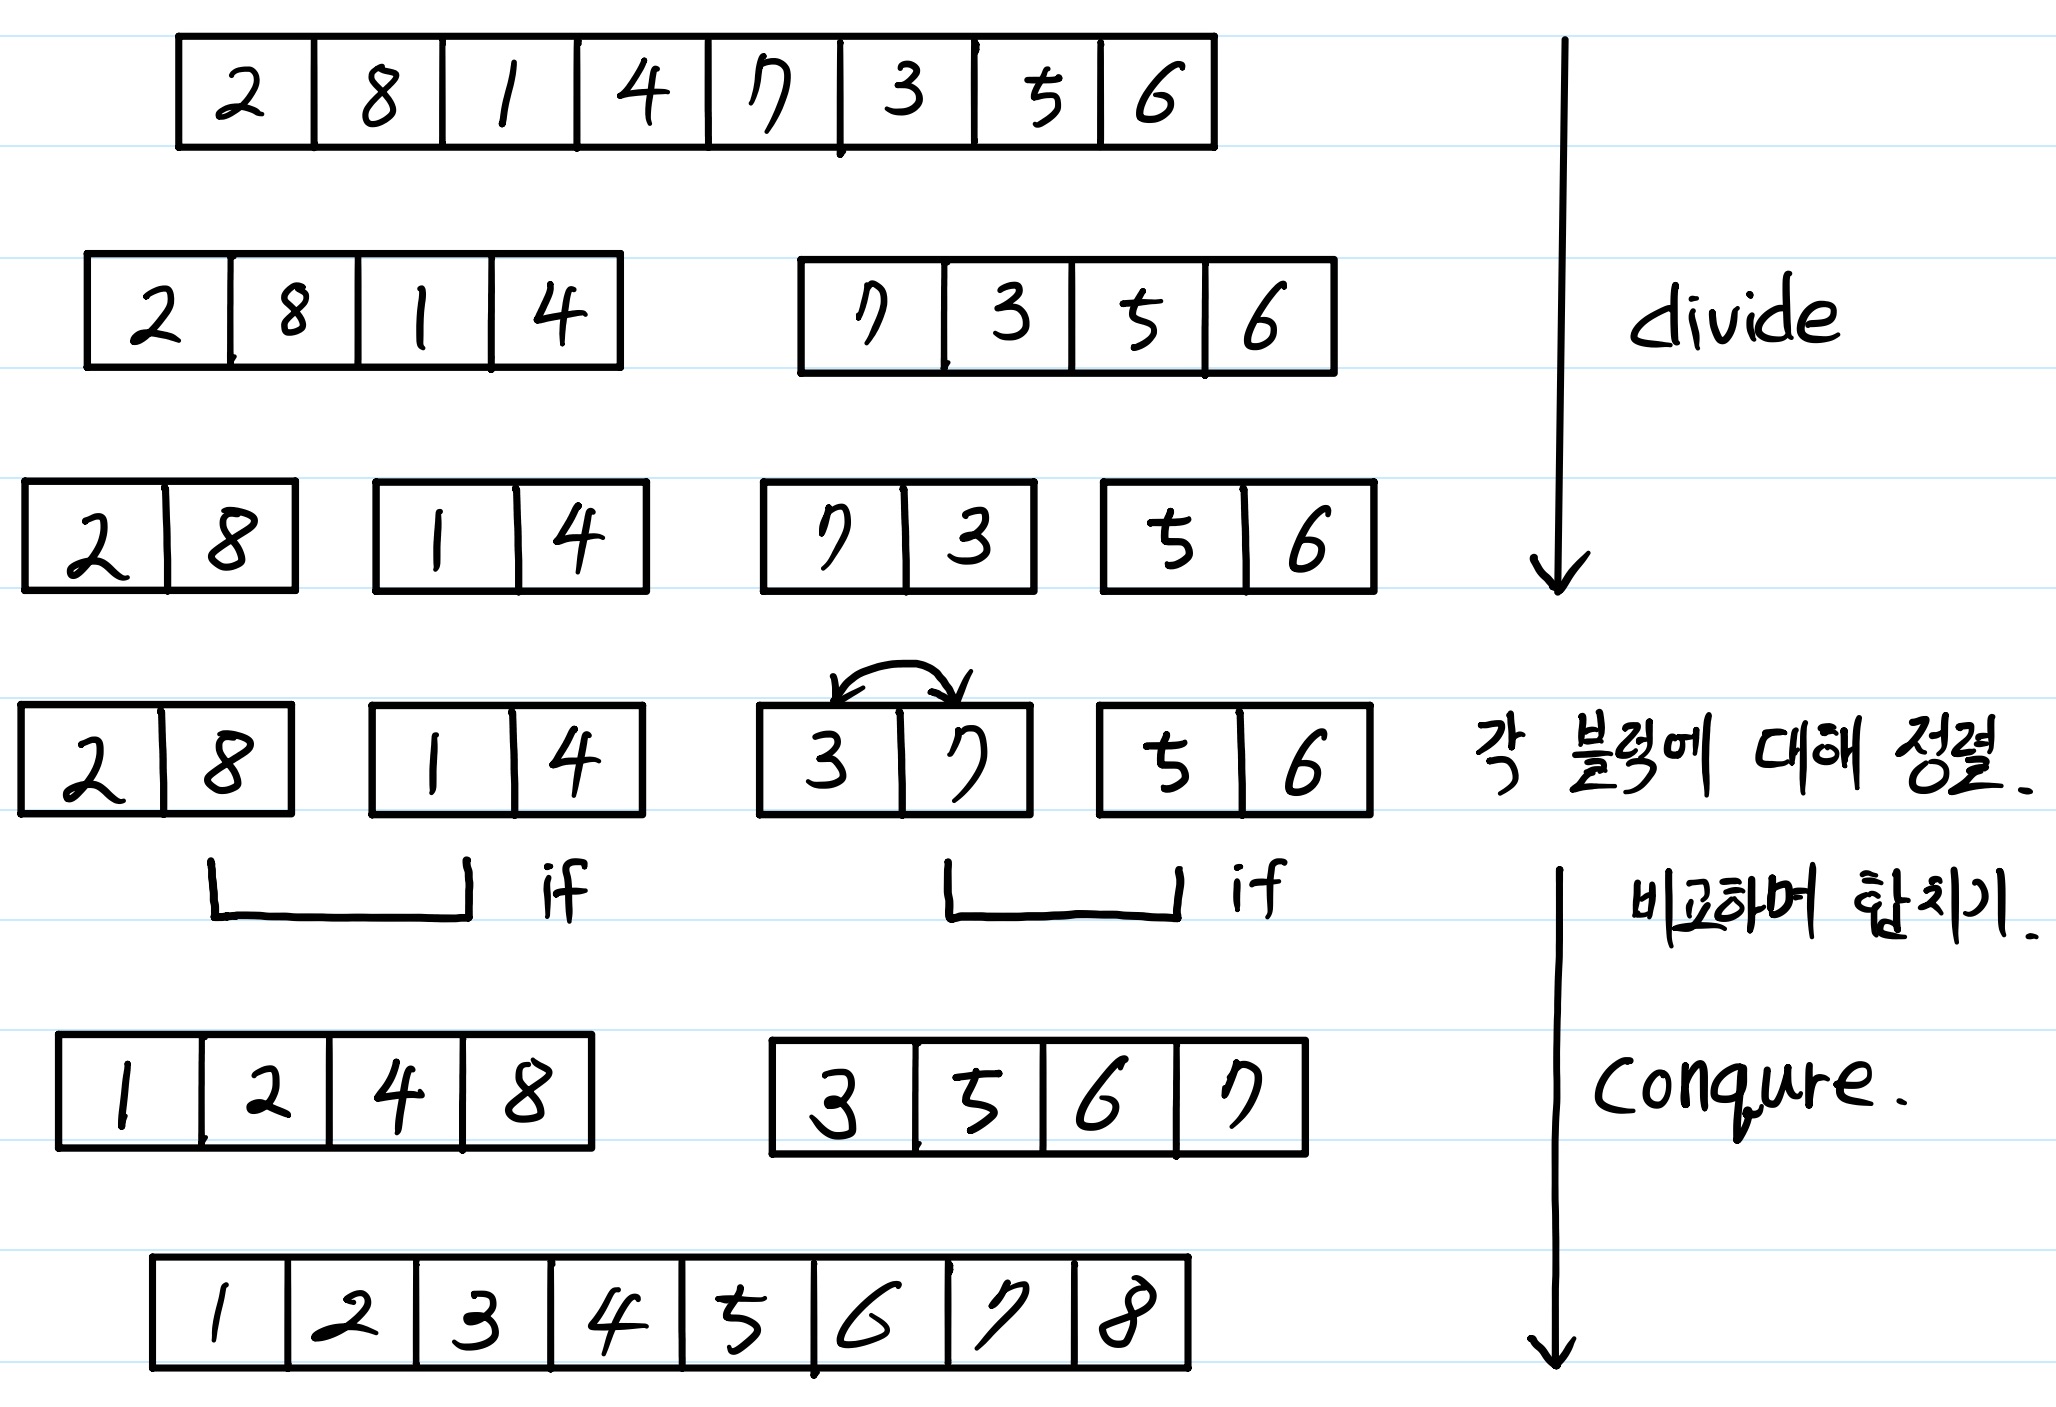 2 8 1 4 7 3 5 6
2 8 1 4 7 3 5 6
divide
2 8 1 4 7 3 5 6
2 8 1 4 3 7 5 6
각 블럭에 대해 정렬.
if if
비교하며 합치기.
1 2 4 8 3 5 6 7
Conqure.
1 2 3 4 5 6 7 8